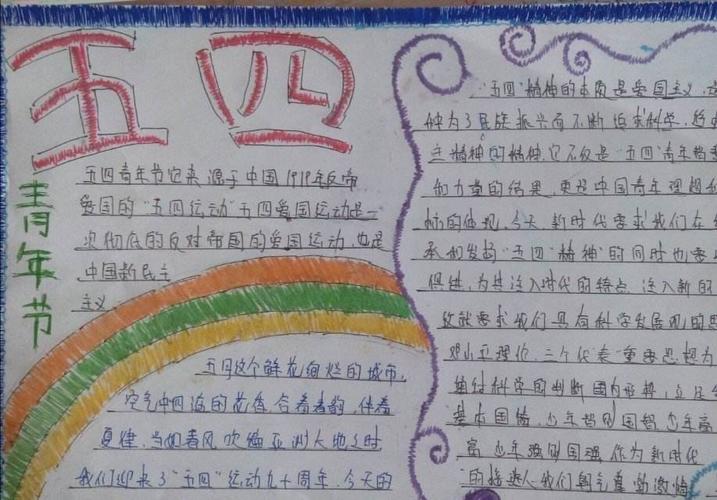 五四
青年节
五四青年节它来源于中国1919年反帝
爱国的"五四运动"五四爱国运动是一
次彻底的反对帝国的爱国运动，也是
中国新民主
主义
五月这个鲜花绚烂的城市，
空气中四溢的花香合着春韵，伴着
夏律，当如春风吹遍亚洲大地之时
我们迎来了"五四"运动九十周年，今天的
"五四"精神的本质是爱国主义，
种为了民族振兴而不断追求科学，
主精神的精神，它不仅是"五四"青年
和力量的结果，更是中国青年理想
标的体现，今天，新时代要求我们在
承和发扬"五四"精神"的同时也要
俱进，为其注入时代的特点，注入新的
这就要求我们具有科学发展观的
邓小平理论，三个代表"重要思想为
基本国情，少年智则国智，少年高
高，少年强则国强，作为新时代
的接班人我们朝气蓬勃激情